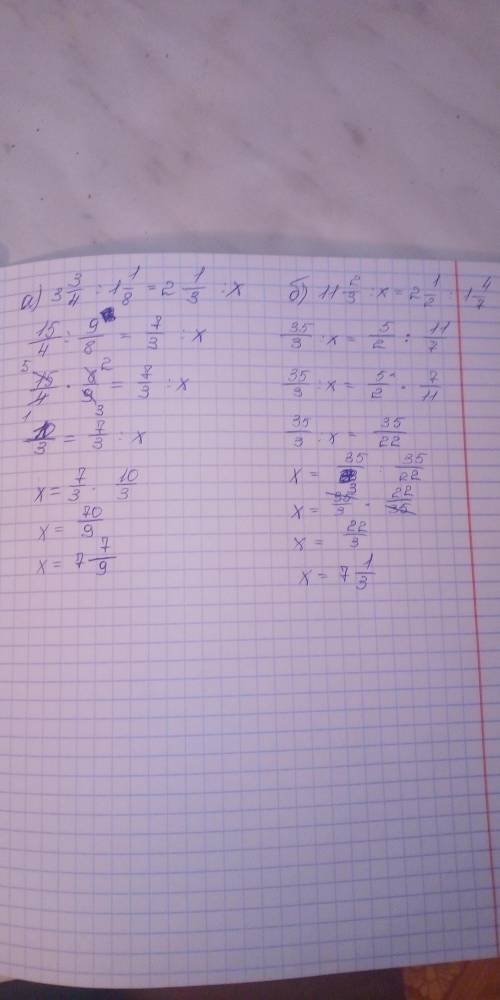 а) 3 3/4 : 1 1/8 = 2 1/3 : x
15/4 : 9/8 = 7/3 : x
15/4 · 8/9 = 7/3 : x
10/3 = 7/3 : x
x = 7/3 · 10/3
x = 70/9
x = 7 7/9
б) 11 2/3 : x = 2 1/2 : 1 4/7
35/3 : x = 5/2 : 11/7
35/3 : x = 5/2 · 7/11
35/3 : x = 35/22
x = 35/3 : 35/22
x = 35/3 · 22/35
x = 22/3
x = 7 1/3